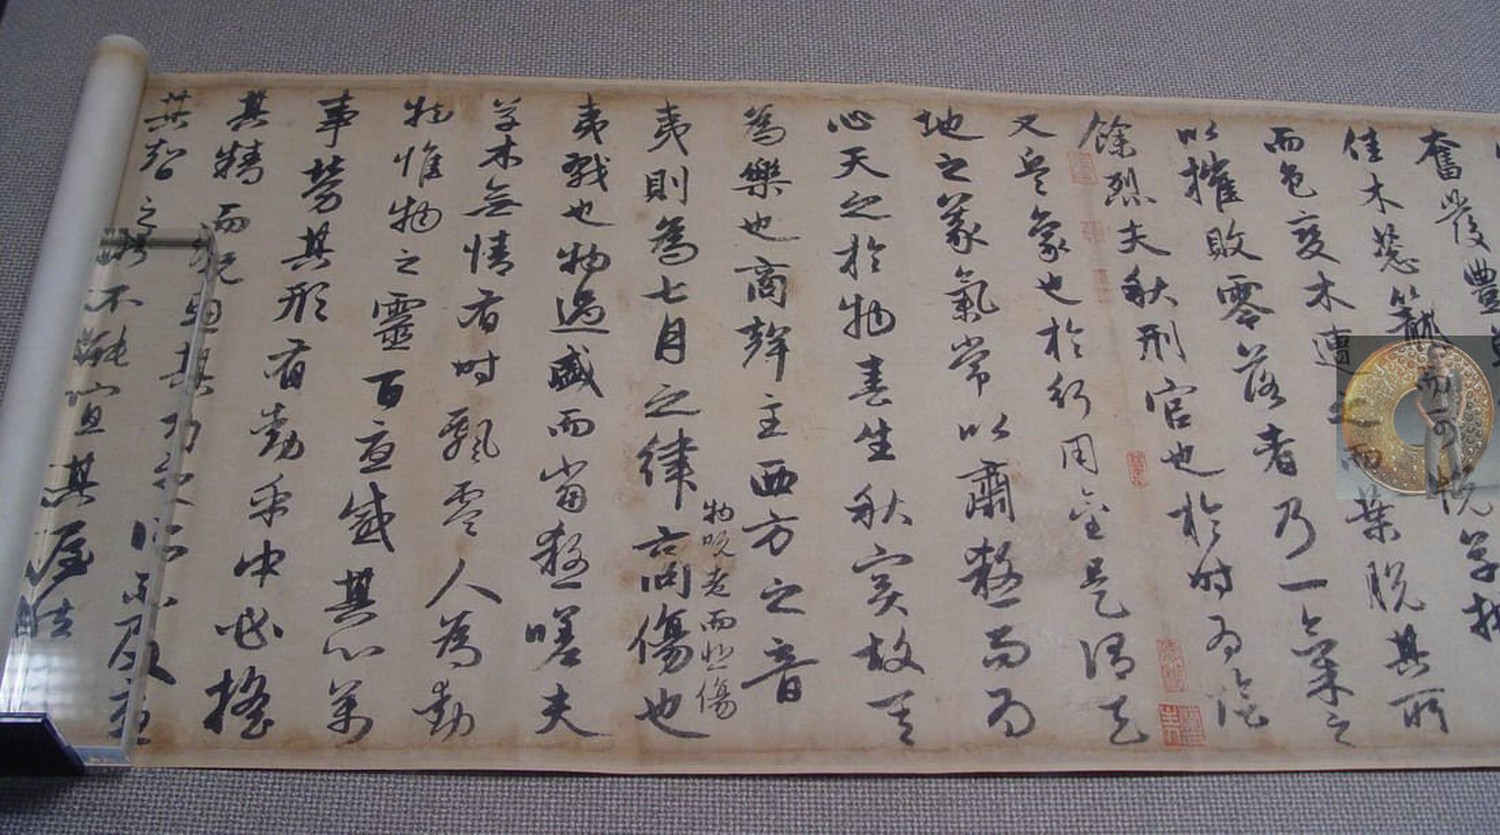 奮發豐
佳木葱籠而可悅草拂
而色變木遭之而葉脫其所
以摧敗零落者乃一氣之
餘烈夫秋刑官也於時為陰
又兵象也於行用金是謂天
地之義氣常以肅殺而為
心天之於物春生秋實故其
為樂也商聲主西方之音
夷則為七月之律商傷也
物既老而悲傷
夷戮也物過盛而當殺嗟夫
草木無情有時飄零人為動
物惟物之靈百憂感其心萬
事勞其形有動乎中必搖
其精而況思其力之所不及憂
其智之所不能宜其渥然